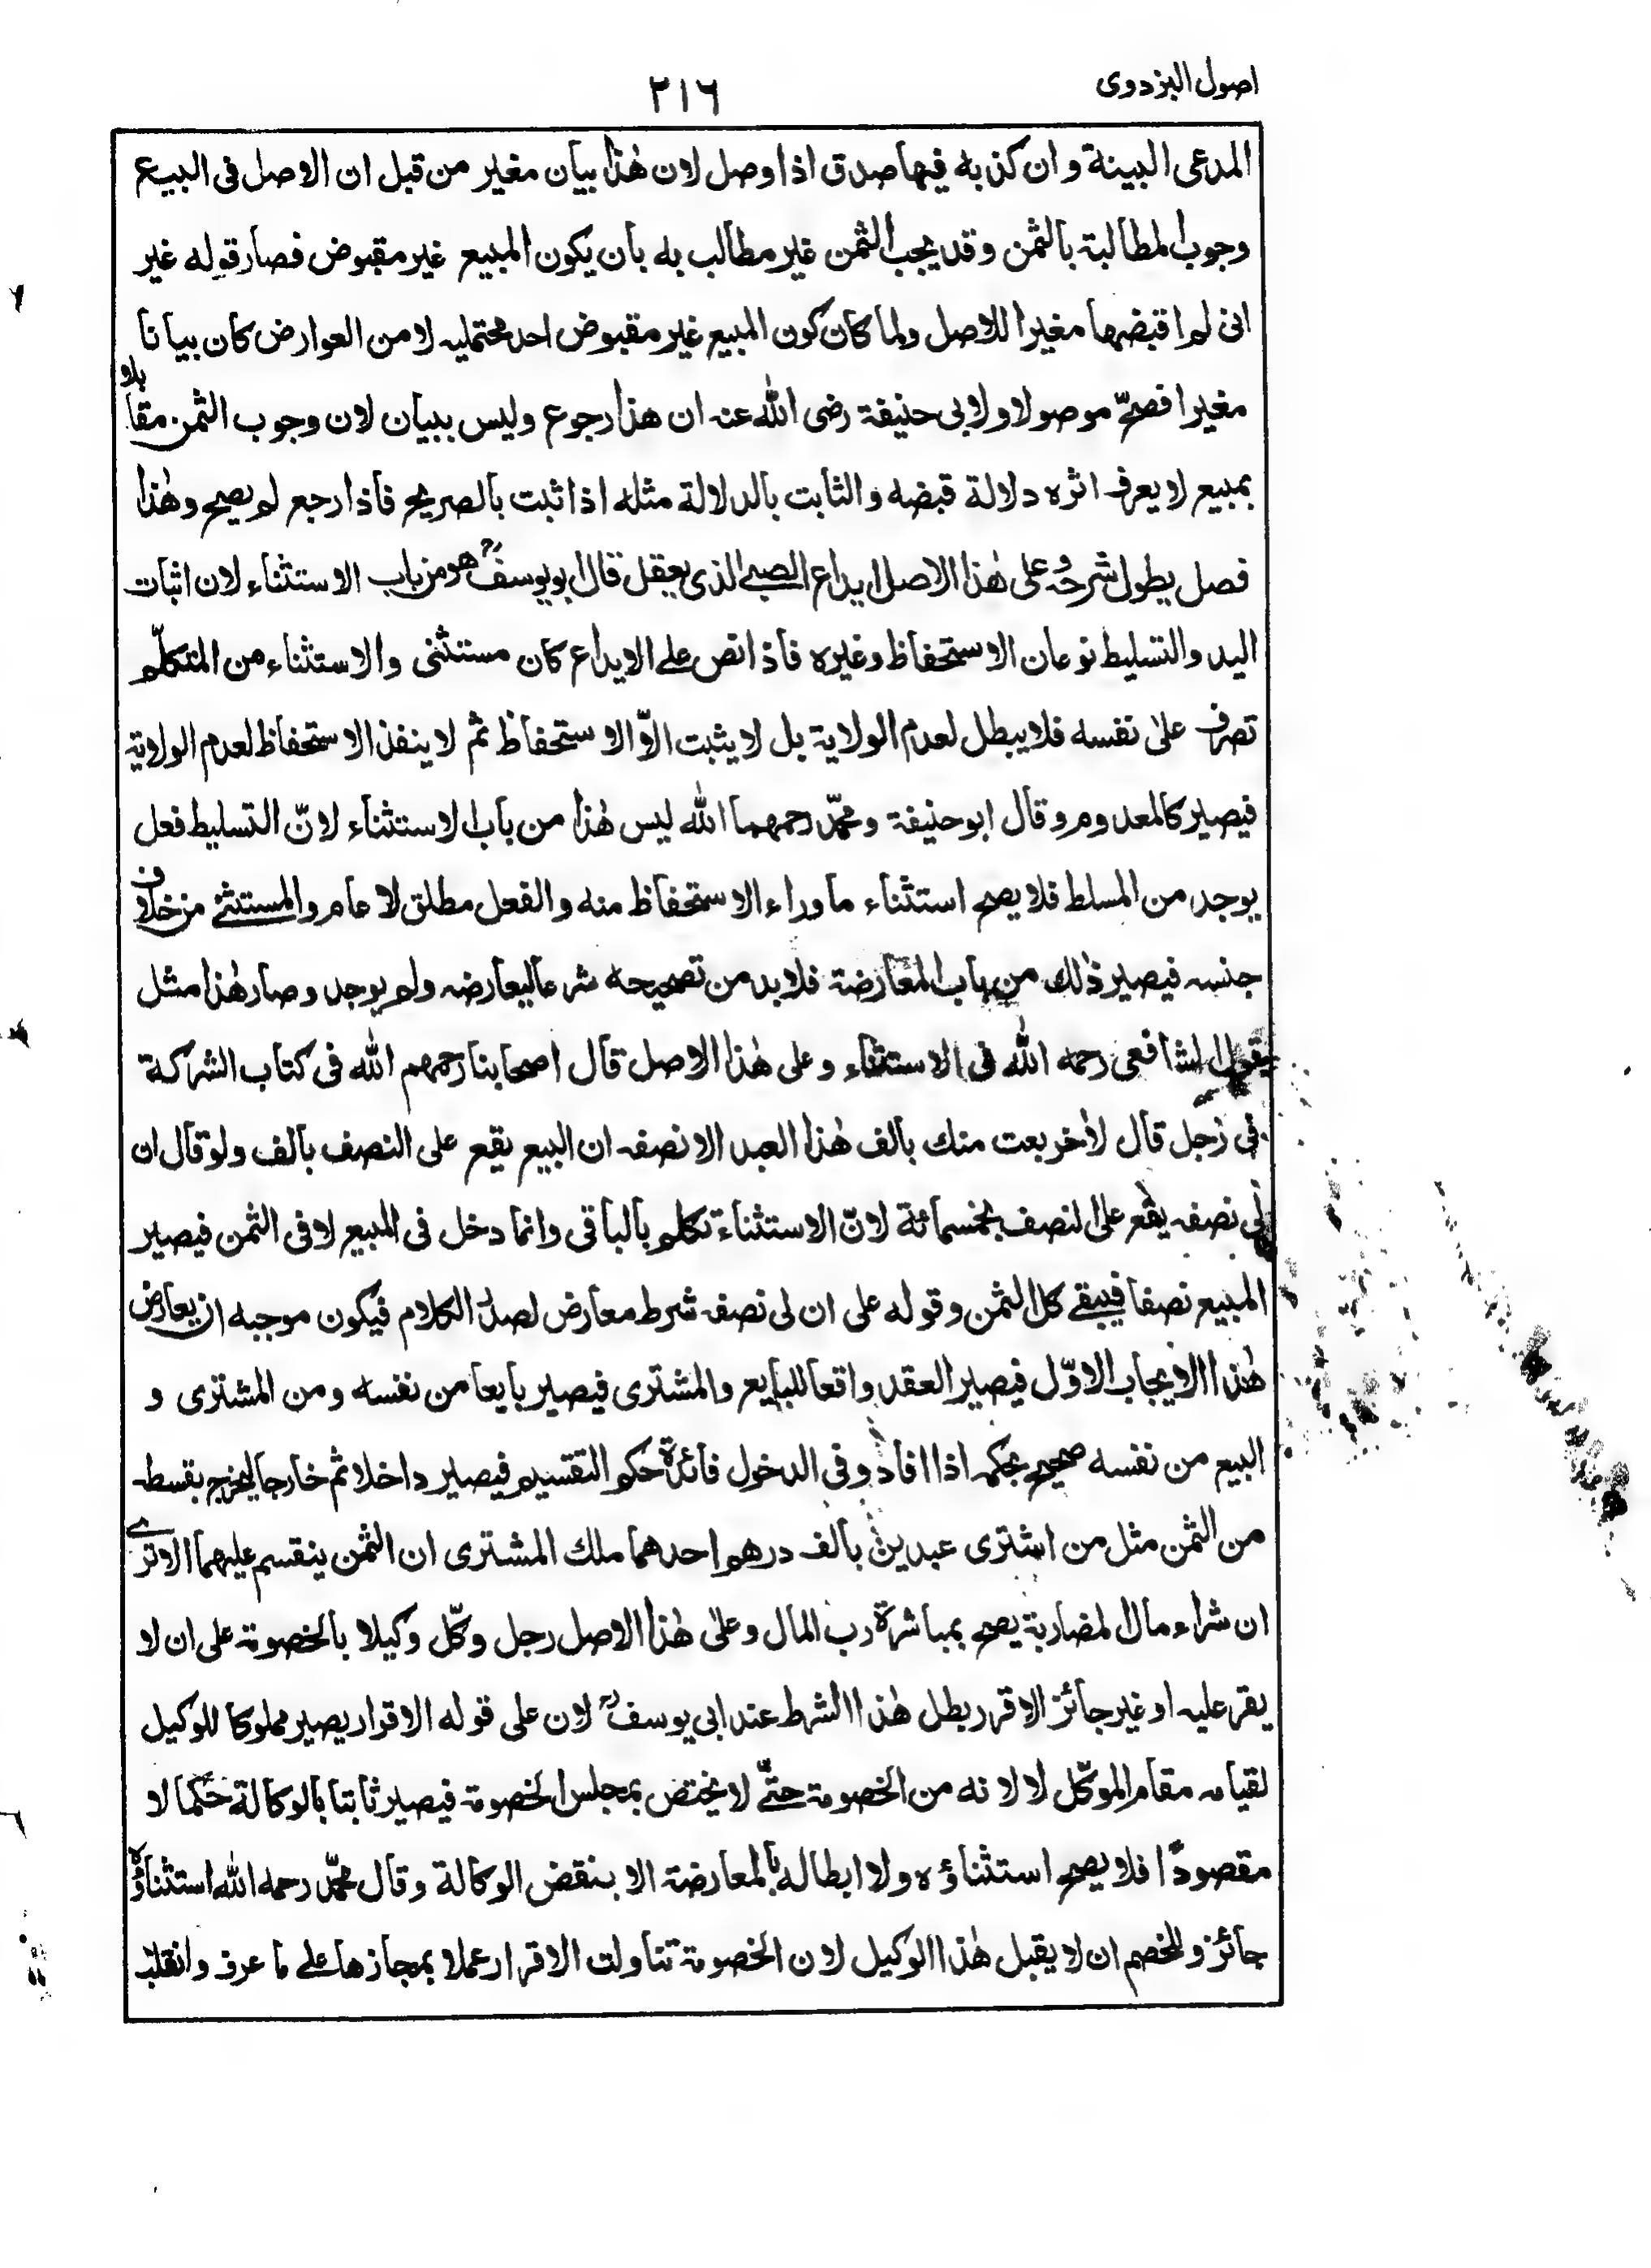 اصول البزدوى
٢١٦
المدعى البينة وان كذبه فيها صدق اذا وصل لان هٰذا بيان مغير من قبل ان الاصل فى البيع
وجوب المطالبة بالثمن وقد يجب الثمن غير مطالب به بان يكون المبيع غير مقبوض فصار قوله غير
انى لم اقبضها مغيرا للاصل ولما كان كون المبيع غير مقبوض احد محتمليه لا من العوارض كان بيانا
مغيرا فصحّ موصولا ولابى حنيفة رضى الله عنه ان هذا رجوع وليس ببيان لان وجوب الثمن مقابلا
بمبيع لا يعرف اثره دلالة قبضه والثابت بالدلالة مثله اذا ثبت بالصريح فاذا رجع لم يصح وهٰذا
فصل يطول شرحُه وعلى هٰذا الاصل ايداع الصبى الذى يعقل قال ابو يوسفؒ هو من باب الاستثناء لان اثبات
اليد والتسليط نوعان الاستحفاظ وغيره فاذا نص على الايداع كان مستثنى والاستثناء من المتكلّم
تصرف علىٰ نفسه فلا يبطل لعدم الولاية بل لا يثبت الّا الاستحفاظ ثم لا ينفذ الاستحفاظ لعدم الولاية
فيصير كالمعدوم وقال ابو حنيفة ومحمّد رحمهما الله ليس هٰذا من باب الاستثناء لانّ التسليط فعل
يوجد من المسلط فلا يصح استثناء ما وراء الاستحفاظ منه والفعل مطلق لا عام والمستثنى من خلاف
جنسه فيصير ذٰلك من باب المعارضة فلا بد من تصحيحه شرعا ليعارضه ولم يوجد وصار هٰذا مثل
يقول الشافعى رحمه الله فى الاستثناء وعلى هٰذا الاصل قال اصحابنا رحمهم الله فى كتاب الشركة
فى رجل قال لأخر بعت منك بالف هٰذا العبد الا نصفه ان البيع يقع على النصف بالف ولو قال ان
لى نصفه يقع على النصف بخمسمائة لانّ الاستثناء تكلم بالباقى وانما دخل فى المبيع لا فى الثمن فيصير
المبيع نصفا فيبقى كل الثمن وقوله على ان لى نصفه شرط معارض لصدر الكلام فيكون موجبه ان يعارض
هٰذا الايجاب الاوّل فيصير العقد واقعا للبايع والمشترى فيصير بايعا من نفسه ومن المشترى و
البيع من نفسه صحيح بحكمه اذا افاد وفى الدخول فائدة حكم التقسيم فيصير داخلا ثم خارجا ليخرج بقسطه
من الثمن مثل من اشترى عبدين بالف درهم احدهما ملك المشترى ان الثمن ينقسم عليهما الا ترى
ان شراء مال المضاربة يصح بمباشرة رب المال وعلىٰ هٰذا الاصل رجل وكّل وكيلا بالخصومة على ان لا
يقر عليه او غير جائز الاقرر بطل هٰذا الشرط عند ابى يوسفؒ لان على قوله الاقرار يصير مملوكا للوكيل
لقيامه مقام الموكّل لا لانه من الخصومة حتّى لا يختص بمجلس الخصومة فيصير ثابتا بالوكالة حكما لا
مقصودًا فلا يصح استثناؤه ولا ابطاله بالمعارضة الا بنقض الوكالة وقال محمّد رحمه الله استثناؤه
جائز وللخصم ان لا يقبل هٰذا الوكيل لان الخصومة تناولت الاقرار عملا بمجازها على ما عرف وانقلب